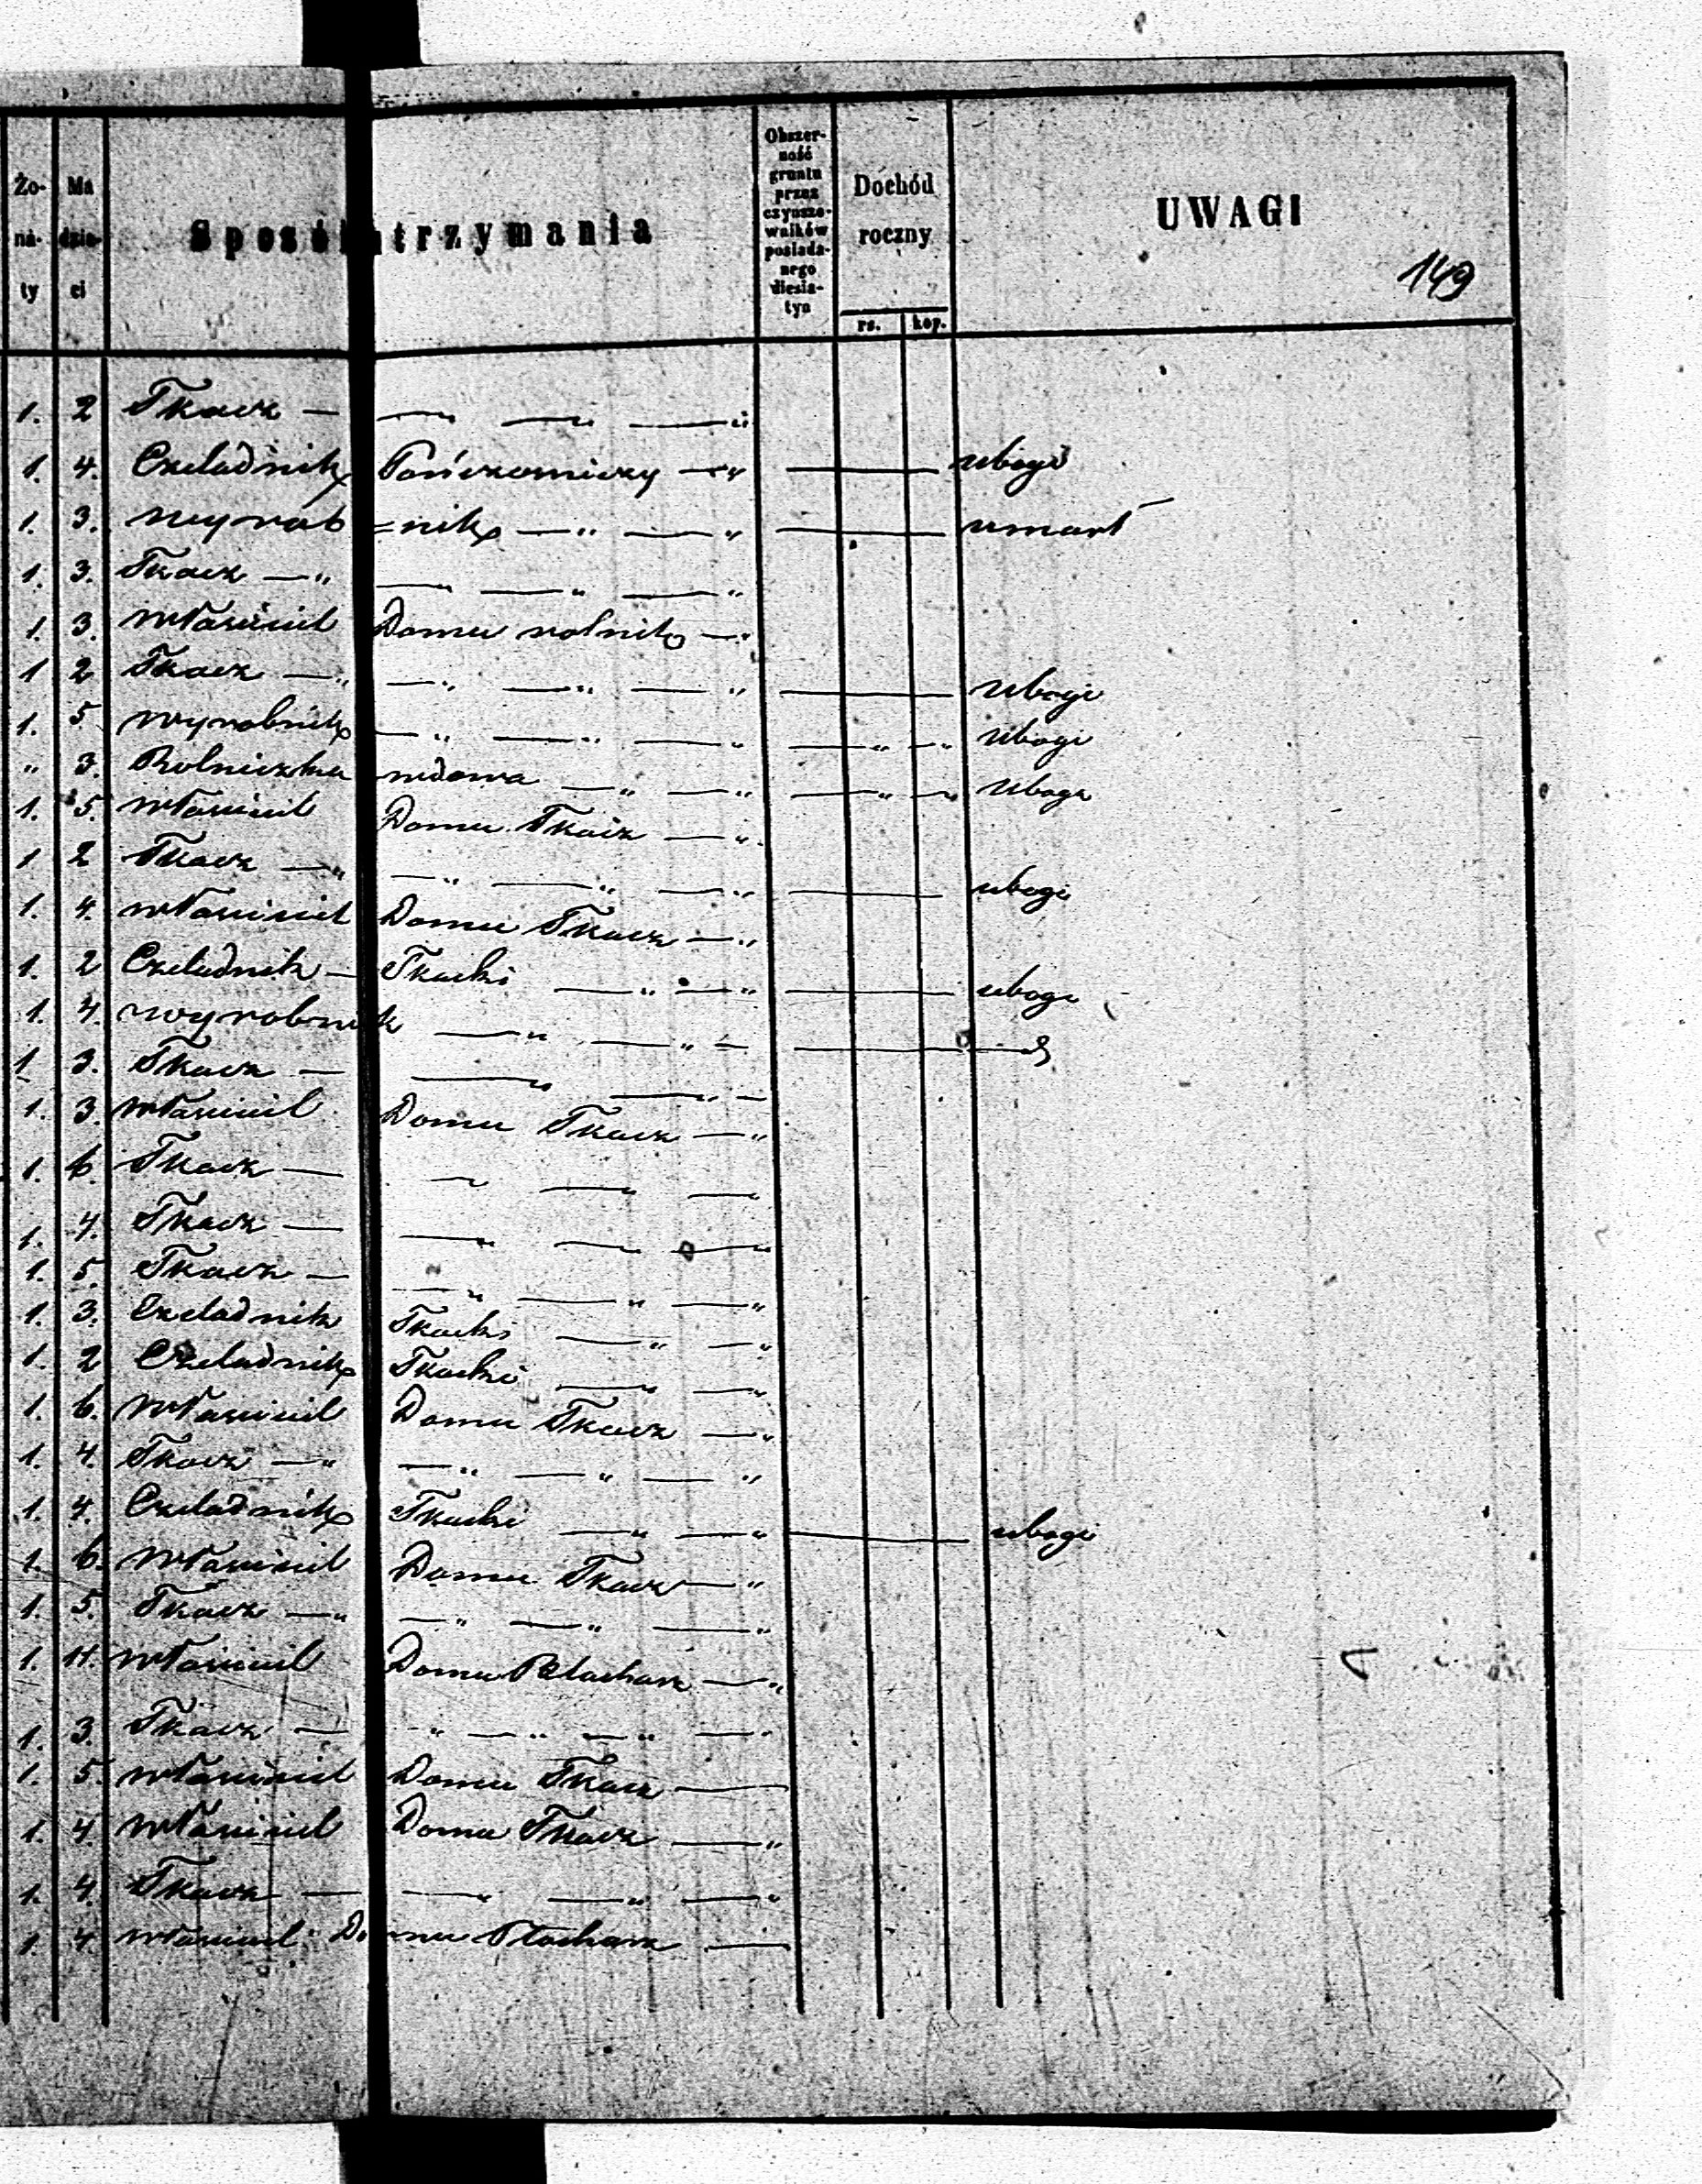 Żo- Ma Sposób utrzymania Obszerność gruntu przez czynszowników posiadanego diesiatyn Dochód roczny UWAGI
na- dzie-
ty ci rs. kop.
149
1. 2 Tkacz —
1. 4. Czeladnik Pończoszniczy — ubogi
1. 3. wyrob =nik — umarł
1. 3. Tkacz —
1. 3. właściciel Domu rolnik —
1 2 Tkacz — ubogi
1. 5 wyrobnik — ubogi
" 3. Rolniczka wdowa — uboga
1. 5. właściciel Domu Tkacz —
1 2 Tkacz — ubogi
1. 4. właściciel Domu Tkacz —
1. 2 Czeladnik — Tkacki — ubogi
1. 4. wyrobnik —
1 3. Tkacz —
1. 3. właściciel Domu Tkacz —
1. 6. Tkacz —
1. 4. Tkacz —
1. 5. Tkacz —
1. 3. Czeladnik Tkacki —
1. 2 Czeladnik Tkacki —
1. 6. właściciel Domu Tkacz —
1. 4. Tkacz —
1. 4. Czeladnik Tkacki — ubogi
1. 6. właściciel Domu Tkacz —
1. 5. Tkacz —
1. właściciel Domu —
1. 3. Tkacz —
1. 5. właściciel Domu Tkacz —
1. 4. właściciel Domu Tkacz —
1. 4. Tkacz —
1. 4. właściciel Domu —